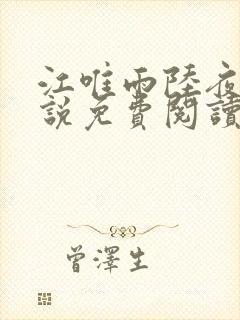 江唯雨陸夜
說免費閱讀
曾澤生